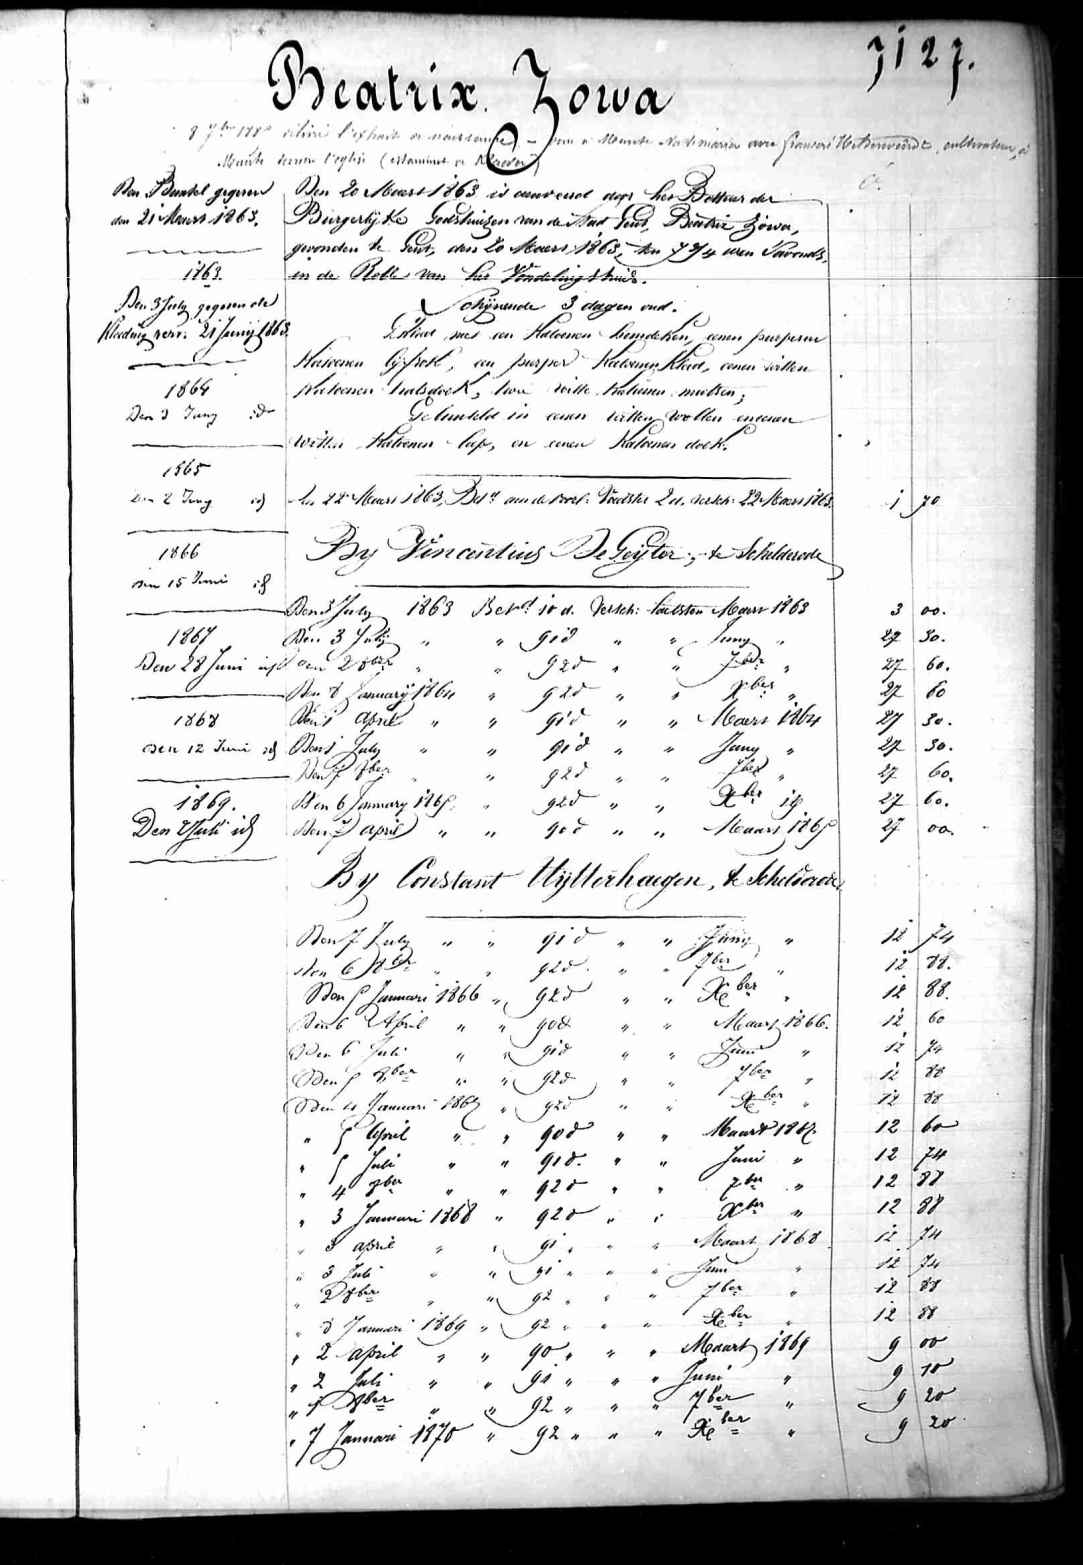 7127.
Beatrix Zowa
délivré l'extrait de naissance
Den Buntel gegeven
den 21 Maart 1863.
1863.
Den 3 July gegeven de
Kleeding verv. 21 Junij 1863
1864
Den 3 Juny id
1865
Den 2 Juny id
1866
den 15 Juni id
1867
Den 28 Juni id
1868
den 12 Juni id
1869.
Den 2 Juli id
Den 20 Maart 1863 is aanveerd door het Bestuur der
Burgerlijke Godshuizen van de Stad Gent, Beatrix Zowa,
gevonden te Gent, den 20 Maart 1863, ten 7 3/4 uren 's avonds,
in de Rolle van het Vondelingshuis.
Schijnende 3 dagen oud.
Gekleed met een Katoenen hemdeken, eenen purperen
Katoenen lijfrok, een purper Katoenen kleed, eenen witten
Katoenen halsdoek, twee witte Katoenen mutsen;
Gebunteld in eenen witten wollen eneenen
witten Katoenen lap, en eenen Katoenen doek.
den 22 Maart 1863, Betd aan de voorl. Voedster 2 d. versch. 22 Maart 1863. 1 70
By Vincentius De Geyter, te Schelderode
Den 3 July 1863 Betd 10 d. Versch: laetsten Maart 1863 3 00.
Den 3 July " " 91 d " " Juny " 27 30.
Den 2 8ber " " 92 d " " 7ber " 27 60.
Den 8 January 1864 " 92 d " " Xber " 27 60
Den 1 April " " 91 d " " Maart 1864 27 30.
Den 1 July " " 91 d " " Juny " 27 30.
Den 7 8ber " " 92 d " " 7ber " 27 60.
Den 6 January 1865, " 92 d " " Xber id 27 60.
Den 7 April " " 90 d " " Maart 1865 27 00.
By Constant Uytterhaegen, te Schelderode.
Den 7 July " " 91 d " " Juny " 12 74
den 6 8ber " " 92 d. " " 7ber " 12 88.
Den 5 Januari 1866 " 92 d " " Xber " 12 88.
Den 6 April " " 90 d " " Maart 1866. 12 60
Den 6 Juli " " 91 d " " Juni " 12 74
Den 5 8ber " " 92 d " " 7ber " 12 88
Den 4 Januari 1867 " 92 d " " Xber " 12 88
" 5 April " " 90 d " " Maart 1867. 12 60
" 5 Juli " " 91 d. " " Juni " 12 74
" 4 8ber " " 92 d " " 7ber " 12 88
" 3 Januari 1868 " 92 d " " Xber " 12 88
" 3 april " " 91 " " " Maart 1868 12 74
" 3 Juli " " 91 " " " Juni " 12 74
" 2 8ber " " 92 " " " 7ber " 12 88
" 8 Januari 1869 " 92 " " " Xber " 12 88
" 2 april " " 90 " " " Maart 1869 9 00
" 2 Juli " " 91 " " " Juni " 9 10
" 1 8ber " " 92 " " " 7ber " 9 20
" 7 Januari 1870 " 92 " " " Xber " 9 20